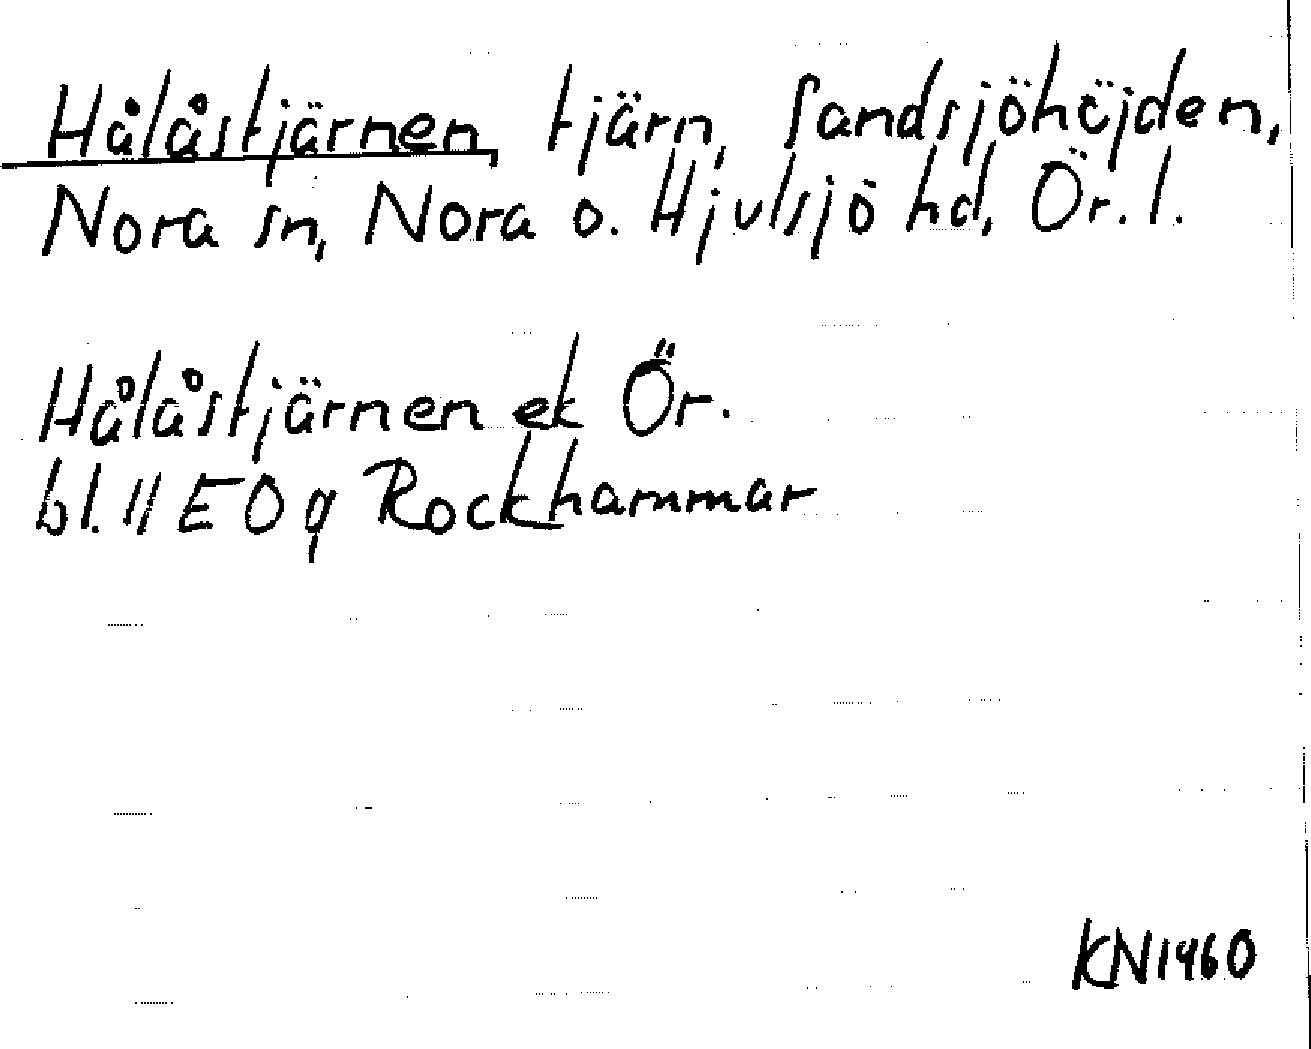 Hålåstjärnen, tjärn, Sandsjöhöjden,
Nora sn, Nora o. Hjulsjö hd, Ör. l.
Hålåstjärnen ek Ör.
bl. 11 E 0 g Rockhammar
KN1460